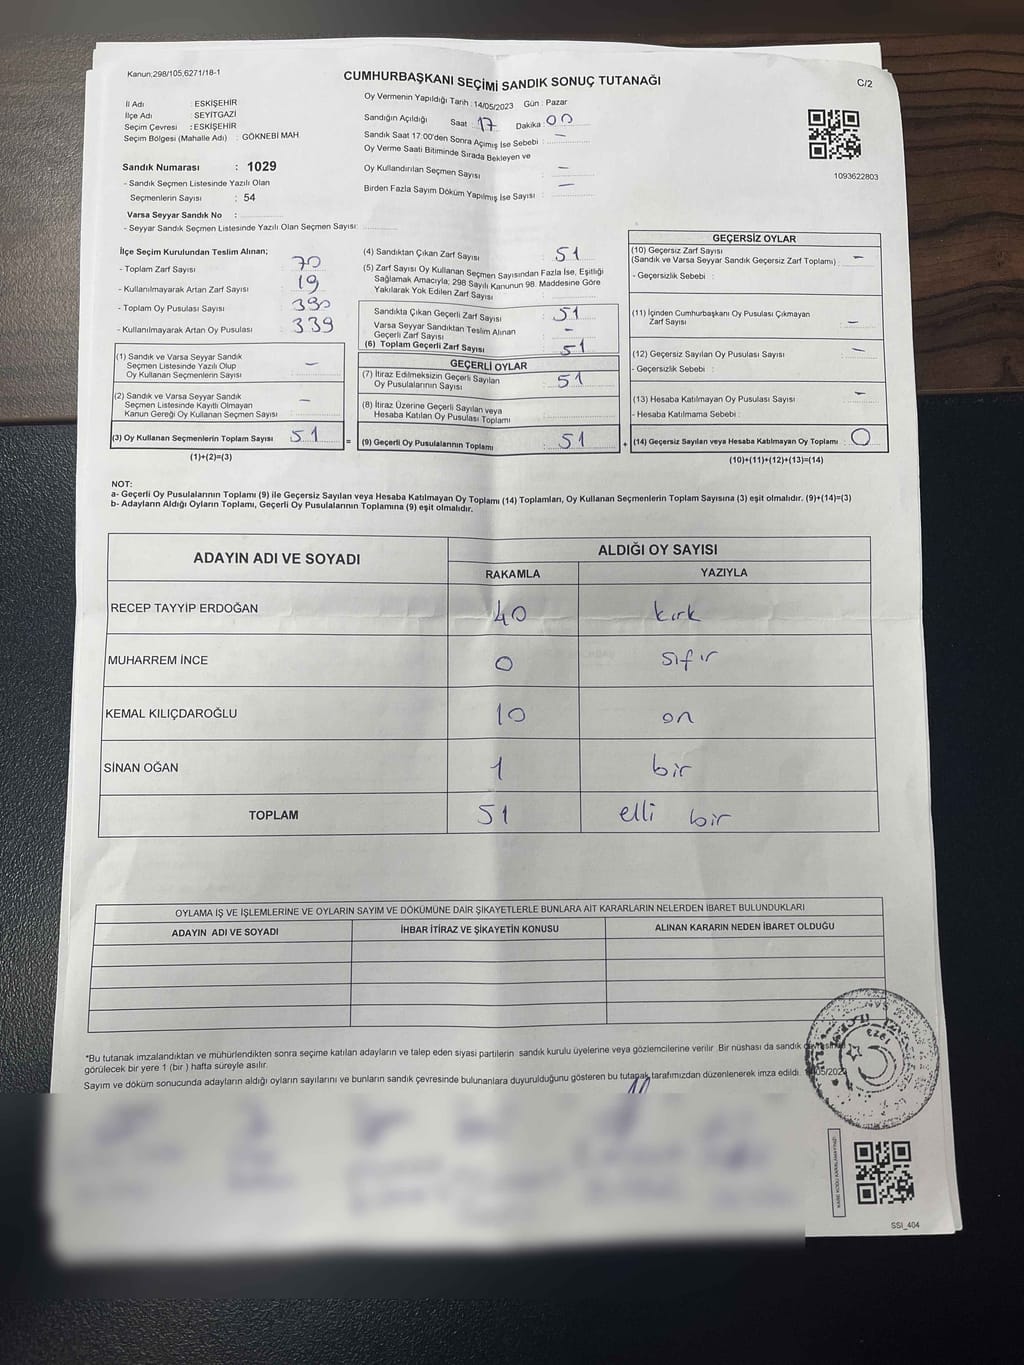 Kanun;298/105,6271/18-1
CUMHURBAŞKANI SEÇİMİ SANDIK SONUÇ TUTANAĞI
C/2
İl Adı : ESKİŞEHİR
İlçe Adı : SEYİTGAZİ
Seçim Çevresi : ESKİŞEHİR
Seçim Bölgesi (Mahalle Adı) : GÖKNEBİ MAH.
Sandık Numarası : 1029
- Sandık Seçmen Listesinde Yazılı Olan
Seçmenlerin Sayısı : 54
Varsa Seyyar Sandık No :
- Seyyar Sandık Seçmen Listesinde Yazılı Olan Seçmen Sayısı:
Oy Vermenin Yapıldığı Tarih : 14/05/2023 Gün : Pazar
Sandığın Açıldığı Saat : 17 Dakika : 00
Sandık Saat 17:00'den Sonra Açımış İse Sebebi : —
Oy Verme Saati Bitiminde Sırada Bekleyen ve
Oy Kullandırılan Seçmen Sayısı : —
Birden Fazla Sayım Döküm Yapılmış İse Sayısı : —
1093622803
İlçe Seçim Kurulundan Teslim Alınan;
- Toplam Zarf Sayısı : 70
- Kullanılmayarak Artan Zarf Sayısı : 19
- Toplam Oy Pusulası Sayısı : 390
- Kullanılmayarak Artan Oy Pusulası : 339
(1) Sandık ve Varsa Seyyar Sandık
Seçmen Listesinde Yazılı Olup
Oy Kullanan Seçmenlerin Sayısı : —
(2) Sandık ve Varsa Seyyar Sandık
Seçmen Listesinde Kayıtlı Olmayan
Kanun Gereği Oy Kullanan Seçmen Sayısı : —
(3) Oy Kullanan Seçmenlerin Toplam Sayısı : 51 =
(1)+(2)=(3)
(4) Sandıktan Çıkan Zarf Sayısı : 51
(5) Zarf Sayısı Oy Kullanan Seçmen Sayısından Fazla İse, Eşitliği
Sağlamak Amacıyla; 298 Sayılı Kanunun 98. Maddesine Göre
Yakılarak Yok Edilen Zarf Sayısı :
Sandıkta Çıkan Geçerli Zarf Sayısı : 51
Varsa Seyyar Sandıktan Teslim Alınan
Geçerli Zarf Sayısı : —
(6) Toplam Geçerli Zarf Sayısı : 51
GEÇERLİ OYLAR
(7) İtiraz Edilmeksizin Geçerli Sayılan
Oy Pusulalarının Sayısı : 51
(8) İtiraz Üzerine Geçerli Sayılan veya
Hesaba Katılan Oy Pusulası Toplamı :
(9) Geçerli Oy Pusulalarının Toplamı : 51 +
GEÇERSİZ OYLAR
(10) Geçersiz Zarf Sayısı
(Sandık ve Varsa Seyyar Sandık Geçersiz Zarf Toplamı) : —
- Geçersizlik Sebebi :
(11) İçinden Cumhurbaşkanı Oy Pusulası Çıkmayan
Zarf Sayısı : —
(12) Geçersiz Sayılan Oy Pusulası Sayısı : —
- Geçersizlik Sebebi :
(13) Hesaba Katılmayan Oy Pusulası Sayısı : —
- Hesaba Katılmama Sebebi :
(14) Geçersiz Sayılan veya Hesaba Katılmayan Oy Toplamı : 0
(10)+(11)+(12)+(13)=(14)
NOT:
a- Geçerli Oy Pusulalarının Toplamı (9) ile Geçersiz Sayılan veya Hesaba Katılmayan Oy Toplamı (14) Toplamları, Oy Kullanan Seçmenlerin Toplam Sayısına (3) eşit olmalıdır. (9)+(14)=(3)
b- Adayların Aldığı Oyların Toplamı, Geçerli Oy Pusulalarının Toplamına (9) eşit olmalıdır.
ADAYIN ADI VE SOYADI
ALDIĞI OY SAYISI
RAKAMLA YAZIYLA
RECEP TAYYİP ERDOĞAN 40 kırk
MUHARREM İNCE 0 sıfır
KEMAL KILIÇDAROĞLU 10 on
SİNAN OĞAN 1 bir
TOPLAM 51 elli bir
OYLAMA İŞ VE İŞLEMLERİNE VE OYLARIN SAYIM VE DÖKÜMÜNE DAİR ŞİKAYETLERLE BUNLARA AİT KARARLARIN NELERDEN İBARET BULUNDUKLARI
ADAYIN ADI VE SOYADI İHBAR İTİRAZ VE ŞİKAYETİN KONUSU ALINAN KARARIN NEDEN İBARET OLDUĞU
*Bu tutanak imzalandıktan ve mühürlendikten sonra seçime katılan adayların ve talep eden siyasi partilerin sandık kurulu üyelerine veya gözlemcilerine verilir. Bir nüshası da sandık
görülecek bir yere 1 (bir ) hafta süreyle asılır.
Sayım ve döküm sonucunda adayların aldığı oyların sayılarını ve bunların sandık çevresinde bulunanlara duyurulduğunu gösteren bu tutanak tarafımızdan düzenlenerek imza edildi.
SSI_404